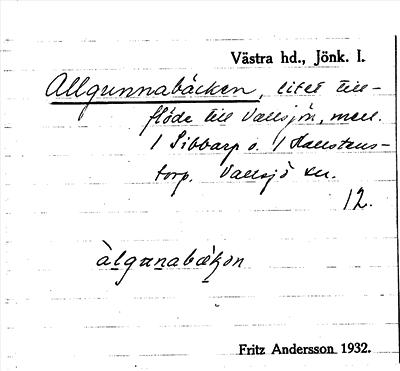 Västra hd., Jönk. l.
Allgunnabäcken, litet till-
flöde till Vallsjön, mell.
1 Sibbarp o. 1 Hallstens-
torp. Vallsjö sn.
12.
àlgunabäkən
Fritz Andersson 1932.